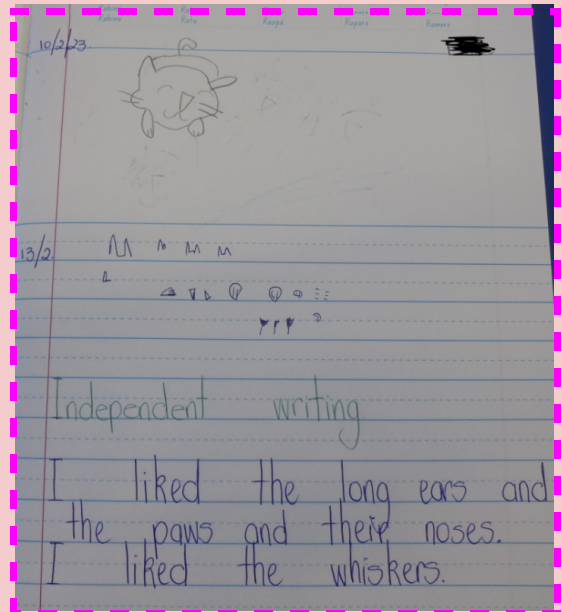 10/2/23.
13/2
Independent writing
I liked the long ears and
the paws and their noses.
I liked the whiskers.